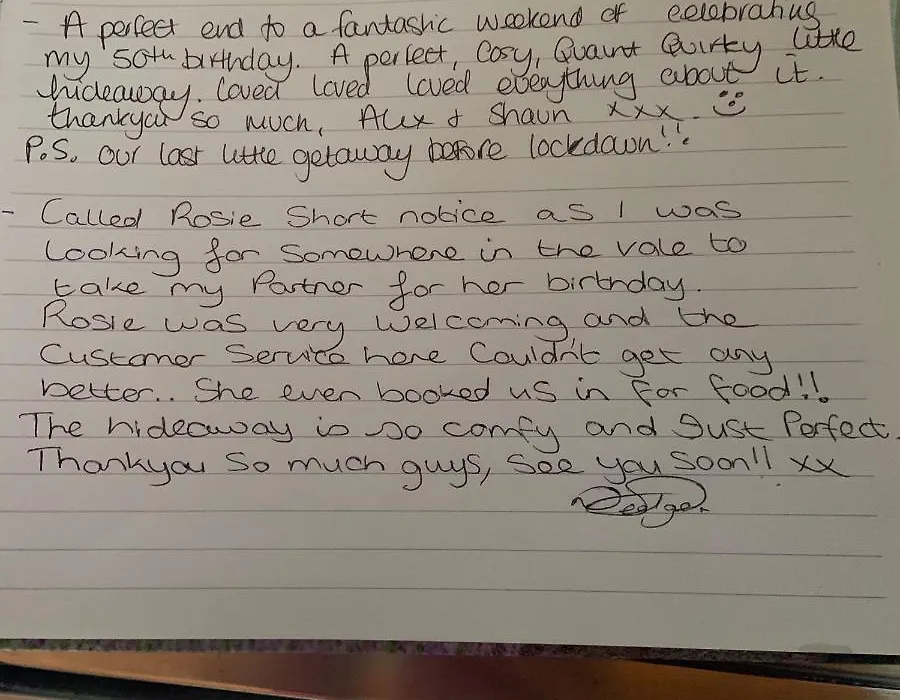 - A perfect end to a fantastic weekend of celebrating
my 50th birthday. A perfect, Cosy, Quaint Quirky little
hideaway. Loved loved loved everything about it.
thankyou so much, Alex & Shaun xxx. ☺
P.S. our last little getaway before lockdown!!
- Called Rosie Short notice as I was
Looking for Somewhere in the vale to
take my Partner for her birthday.
Rosie was very Welcoming and the
Customer Service here Couldn't get any
better.. She even booked us in for food!!
The hideaway is so comfy and Just Perfect.
Thankyou So much guys, See you Soon!! xx